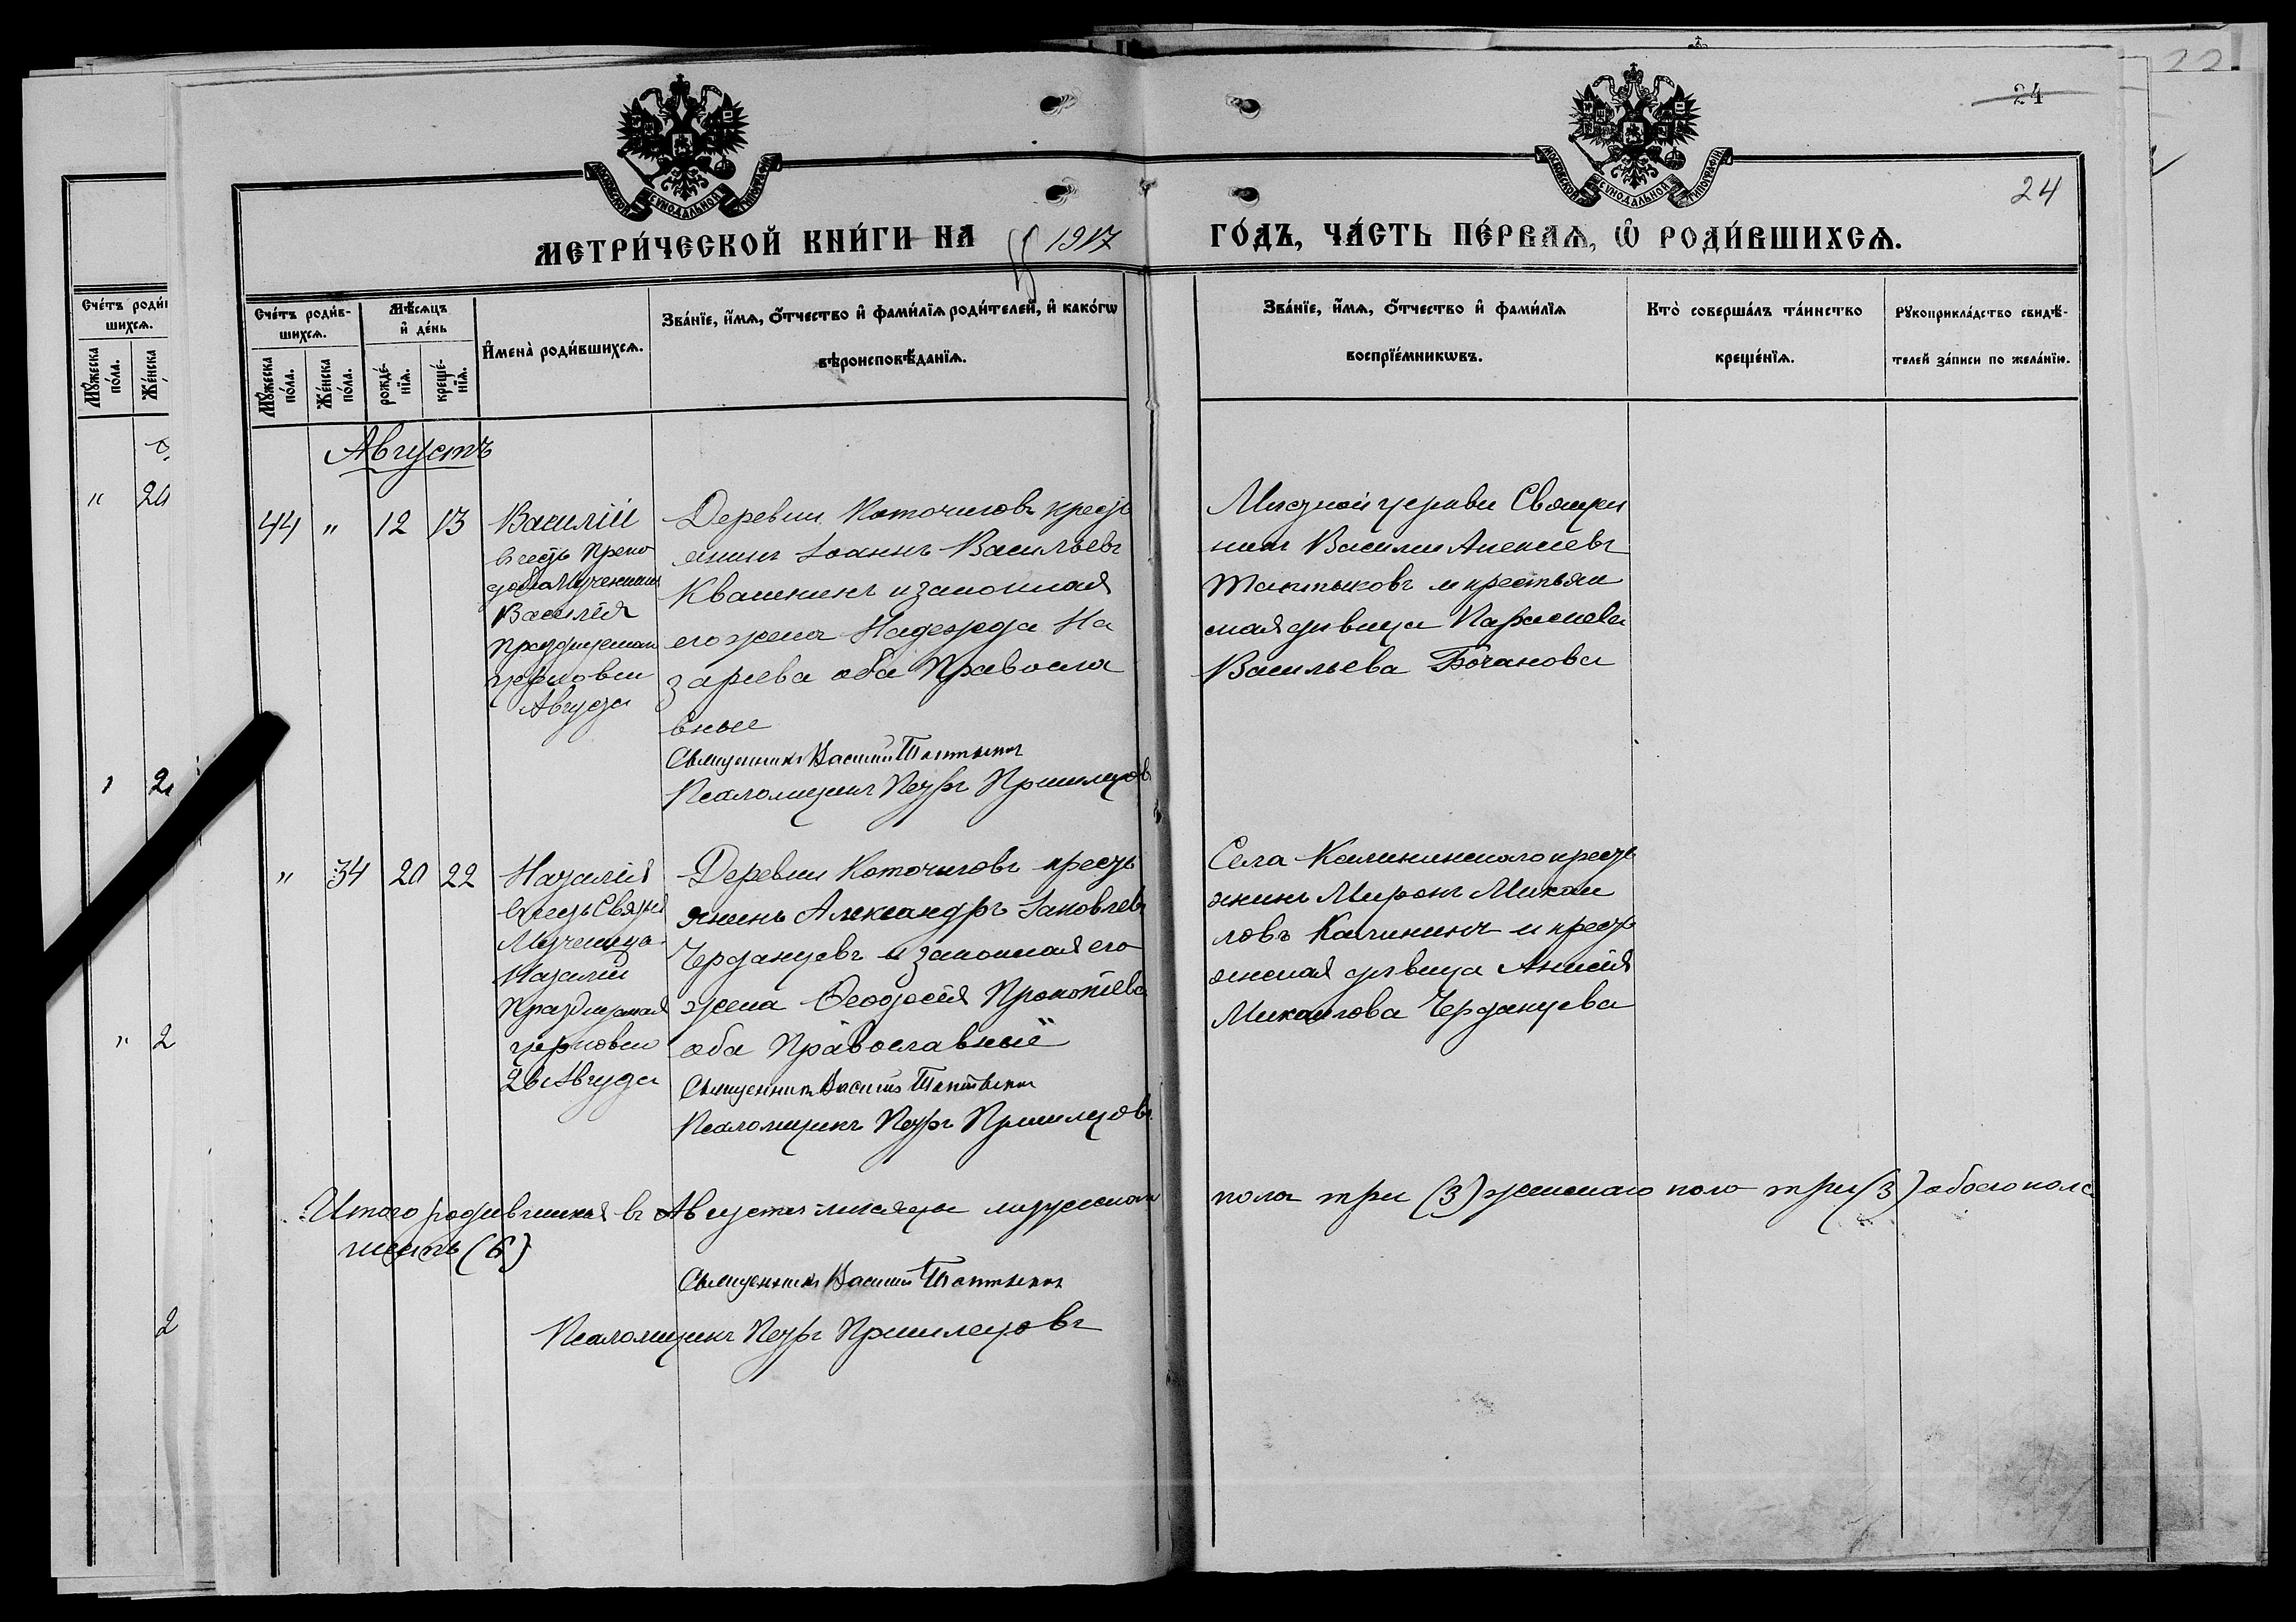 24
22
24
МОСКОВСКОЙ СѴНОДАЛЬНОЙ ТИПОГРАФІИ
МОСКОВСКОЙ СѴНОДАЛЬНОЙ ТИПОГРАФІИ
МЕТРИ́ЧЕСКОЙ КНИ́ГИ НА 1917 ГО́ДЪ, ЧА́СТЬ ПЕ́РВАѦ, Ѡ҆ РОДИ́ВШИХСѦ.
Сче́тъ роди́в-
шихсѧ.
Мꙋ́жеска
по́ла.
Же́нска
по́ла.
Мѣ́сѧцъ
и҆ де́нь
рожде́-
нїѧ.
креще́-
нїѧ.
И҆мена̀ роди́вшихсѧ.
Зва́нїе, и҆́мѧ, ѻ҆́тчество и҆ фами́лїѧ роди́телей, и҆ како́гѡ
вѣроисповѣ́данїѧ.
Зва́нїе, и҆́мѧ, ѻ҆́тчество и҆ фами́лїѧ
воспрїе́мникѡвъ.
Кто̀ соверша́лъ та́инство
креще́нїѧ.
Рꙋкоприкла́дство свидѣ́-
телей за́писи по жела́нїю.
Августъ
44 " 12 13
Василій
въ честь Препо
добномученика
Василія
празднуемаго
церковью
Августа
Деревни Коточиговъ кресть
янинъ Іоаннъ Васильевъ
Квашнинъ и законная
его жена Надежда На
зарьева оба Правосла
вные
Священникъ Василій Тактыковъ
Псаломщикъ Петръ Пришлецовъ
Мѣстной церкви Священ
никъ Василій Алексѣевъ
Тактыковъ и крестьян
ская дѣвица Параскева
Васильева Бочанова
" 34 20 22
Наталія
въ честь Святыя
Мученицы
Наталіи
Празднуемая
церковью
26 Августа
Деревни Коточиговъ кресть
янинъ Александръ Іаковлевъ
Черданцевъ и законная его
жена Ѳеодосія Прокопіева
оба Православные
Священникъ Василій Тактыковъ
Псаломщикъ Петръ Пришлецовъ
Села Калининскаго кресть
янинъ Миронъ Михаи
ловъ Калининъ и кресть
янская дѣвица Анисія
Михаилова Черданцева
Итого родившихся въ Августѣ мѣсяцѣ мужескаго пола три (3) женскаго пола три (3) обоего пола
шесть (6)
Священникъ Василій Тактыковъ
Псаломщикъ Петръ Пришлецовъ